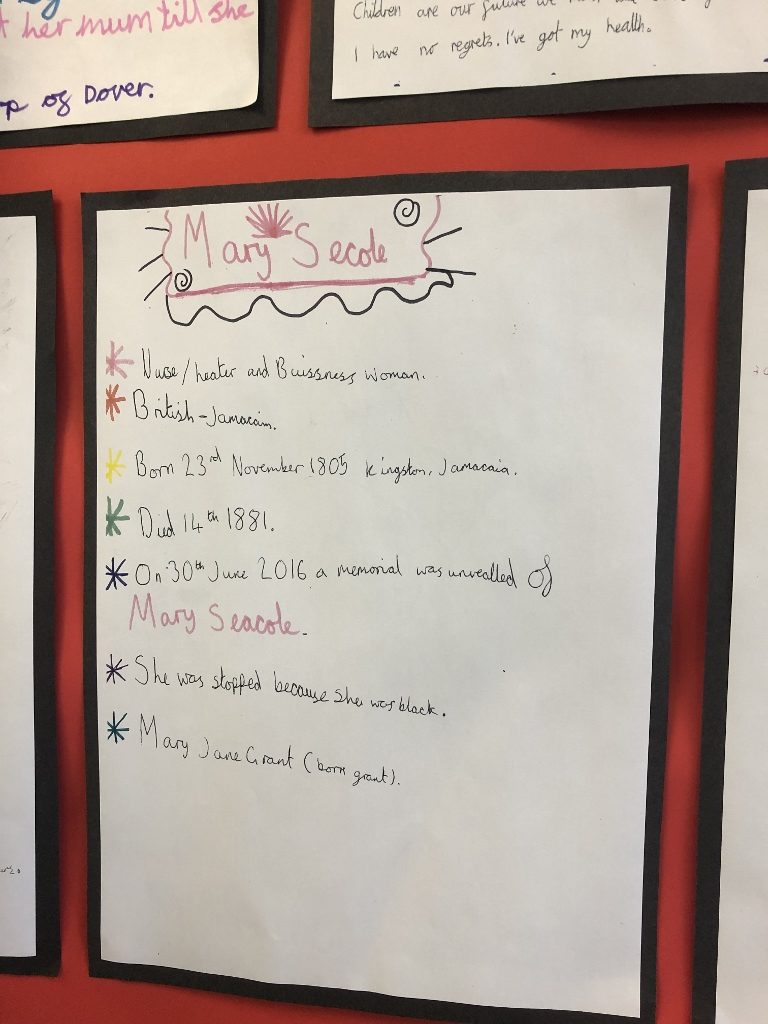 her mum till she
of Dover.
Children are our future we
I have no regrets. I've got my health.
Mary Secole
Nuse/heater and Buissness woman.
British-Jamacain.
Born 23rd November 1805 kingston, Jamacaia.
Died 14th 1881.
On 30th June 2016 a memorial was unvealled of
Mary Seacole.
She was stopped because she was black.
Mary Jane Grant (born grant).